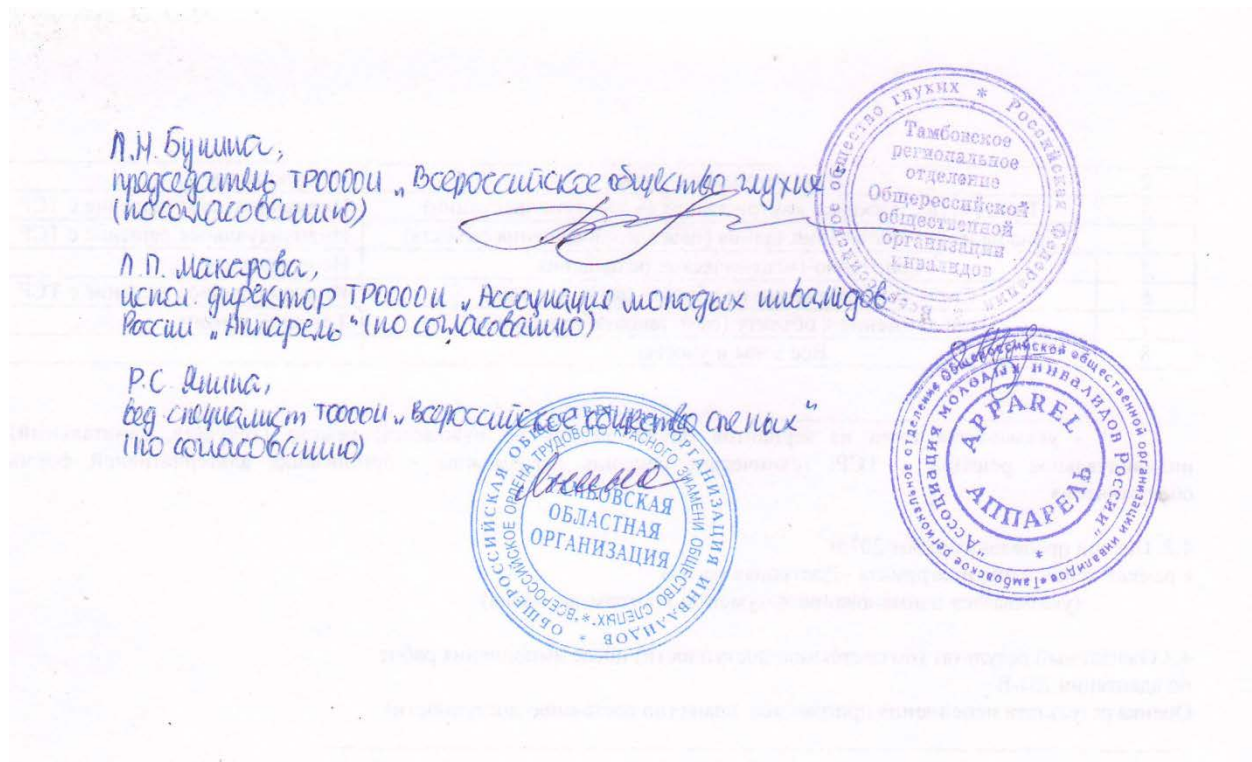 Л.Н. Бунина,
председатель ТРОООИ „Всероссийское общество глухих
(по согласованию)
Л.П. Макарова,
испол. директор ТРОООИ „Ассоциация молодых инвалидов
России „Аппарель" (по согласованию)
Р.С. Янина,
вед. специалист ТОООИ „Всероссийское общество слепых"
(по согласованию)
Всероссийское общество глухих * Российская Федерация
Тамбовское
региональное
отделение
Общероссийской
общественной
организации
инвалидов
Тамбовское региональное отделение Общероссийской общественной организации инвалидов
Ассоциация молодых инвалидов России
APPAREL
АППАРЕЛЬ
ОБЩЕРОССИЙСКАЯ ОБЩЕСТВЕННАЯ ОРГАНИЗАЦИЯ ИНВАЛИДОВ *
ВСЕРОССИЙСКОЕ ОРДЕНА ТРУДОВОГО КРАСНОГО ЗНАМЕНИ ОБЩЕСТВО СЛЕПЫХ. *
ТАМБОВСКАЯ
ОБЛАСТНАЯ
ОРГАНИЗАЦИЯ